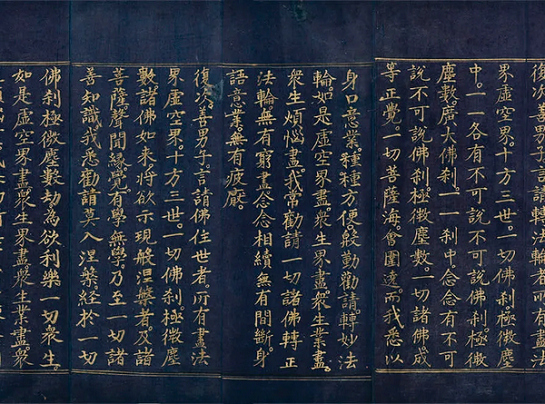 復次善男子言請轉法輪者所有盡法
界虛空界十方三世一切佛刹極微塵
中一一各有不可說不可說佛刹極微
塵數廣大佛刹一一刹中念念有不可
說不可說佛刹極微塵數一切諸佛成
等正覺一切菩薩海會圍遶而我悉以
身口意業種種方便殷勤勸請轉妙法
輪如是虛空界盡衆生界盡衆生業盡
衆生煩惱盡我常勸請一切諸佛轉正
法輪無有窮盡念念相續無有間斷身
語意業無有疲厭
復次善男子言請佛住世者所有盡法
界虛空界十方三世一切佛刹極微塵
數諸佛如来將欲示現般涅槃者及諸
菩薩聲聞緣覺有學無學乃至一切諸
善知識我悉勸請莫入涅槃経於一切
佛刹極微塵數劫為欲利樂一切衆生
如是虛空界盡衆生界盡衆生業盡衆